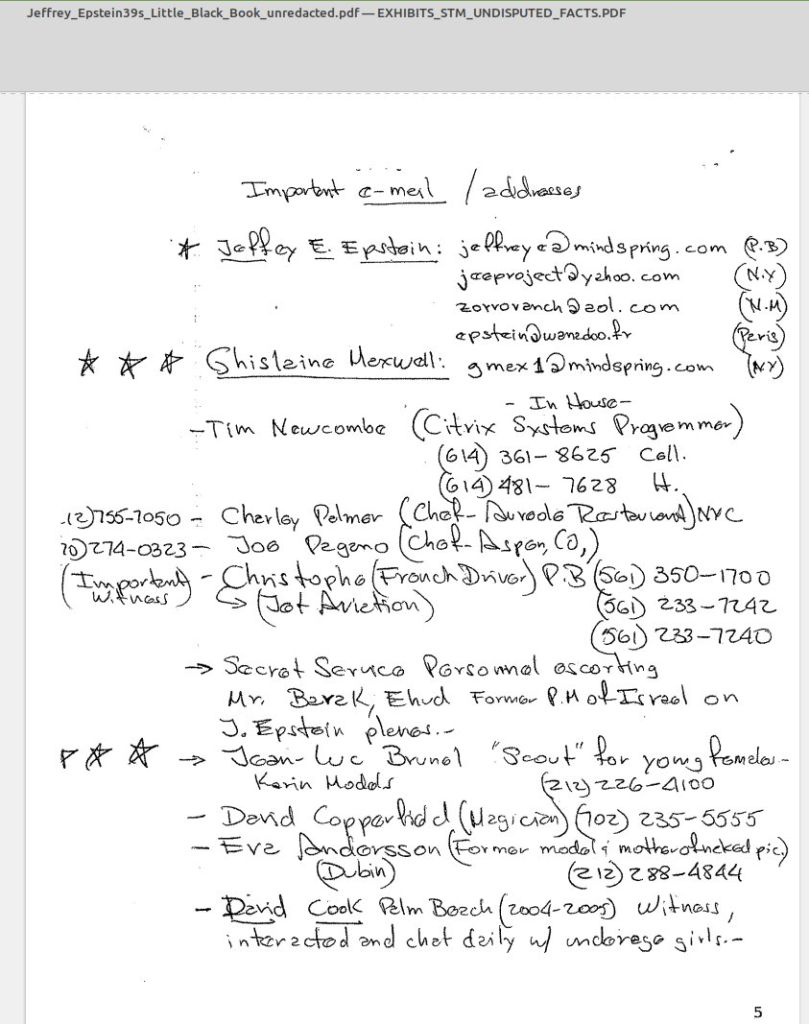 Jeffrey_Epstein39s_Little_Black_Book_unredacted.pdf — EXHIBITS_STM_UNDISPUTED_FACTS.PDF
Important e-mail / addresses
Jeffey E. Epstein: jeffreye@mindspring.com (P.B)
jeeproject@yahoo.com (N.Y)
zorroranch@aol.com (N.M)
epstein@wanadoo.fr (Paris)
Ghislaine Maxwell: gmax1@mindspring.com (NY)
- In House-
-Tim Newcombe (Citrix Systems Programmer)
(614) 361-8625 Cell.
(614) 481-7628 H.
12)755-7050 - Charley Palmer (Chef-Aureole Restaurant) NYC
70)274-0323- Joe Pagano (Chef-Aspen, CO,)
(Important Witness) - Christophe (French Driver) P.B (561) 350-1700
(Jet Aviation) (561) 233-7242
(561) 233-7240
→ Secret Service Personnal escorting
Mr. Barak, Ehud Former P.M of Israel on
J. Epstein planes.-
→ Jean-Luc Brunel "Scout" for young females-
Karin Models (212) 226-4100
- David Copperfield (Magician) (702) 235-5555
- Eva Andersson (Former model & mother of naked pic)
(Dubin) (212) 288-4844
- David Cook Palm Beach (2004-2005) Witness,
interacted and chat daily w/ underage girls.-
5